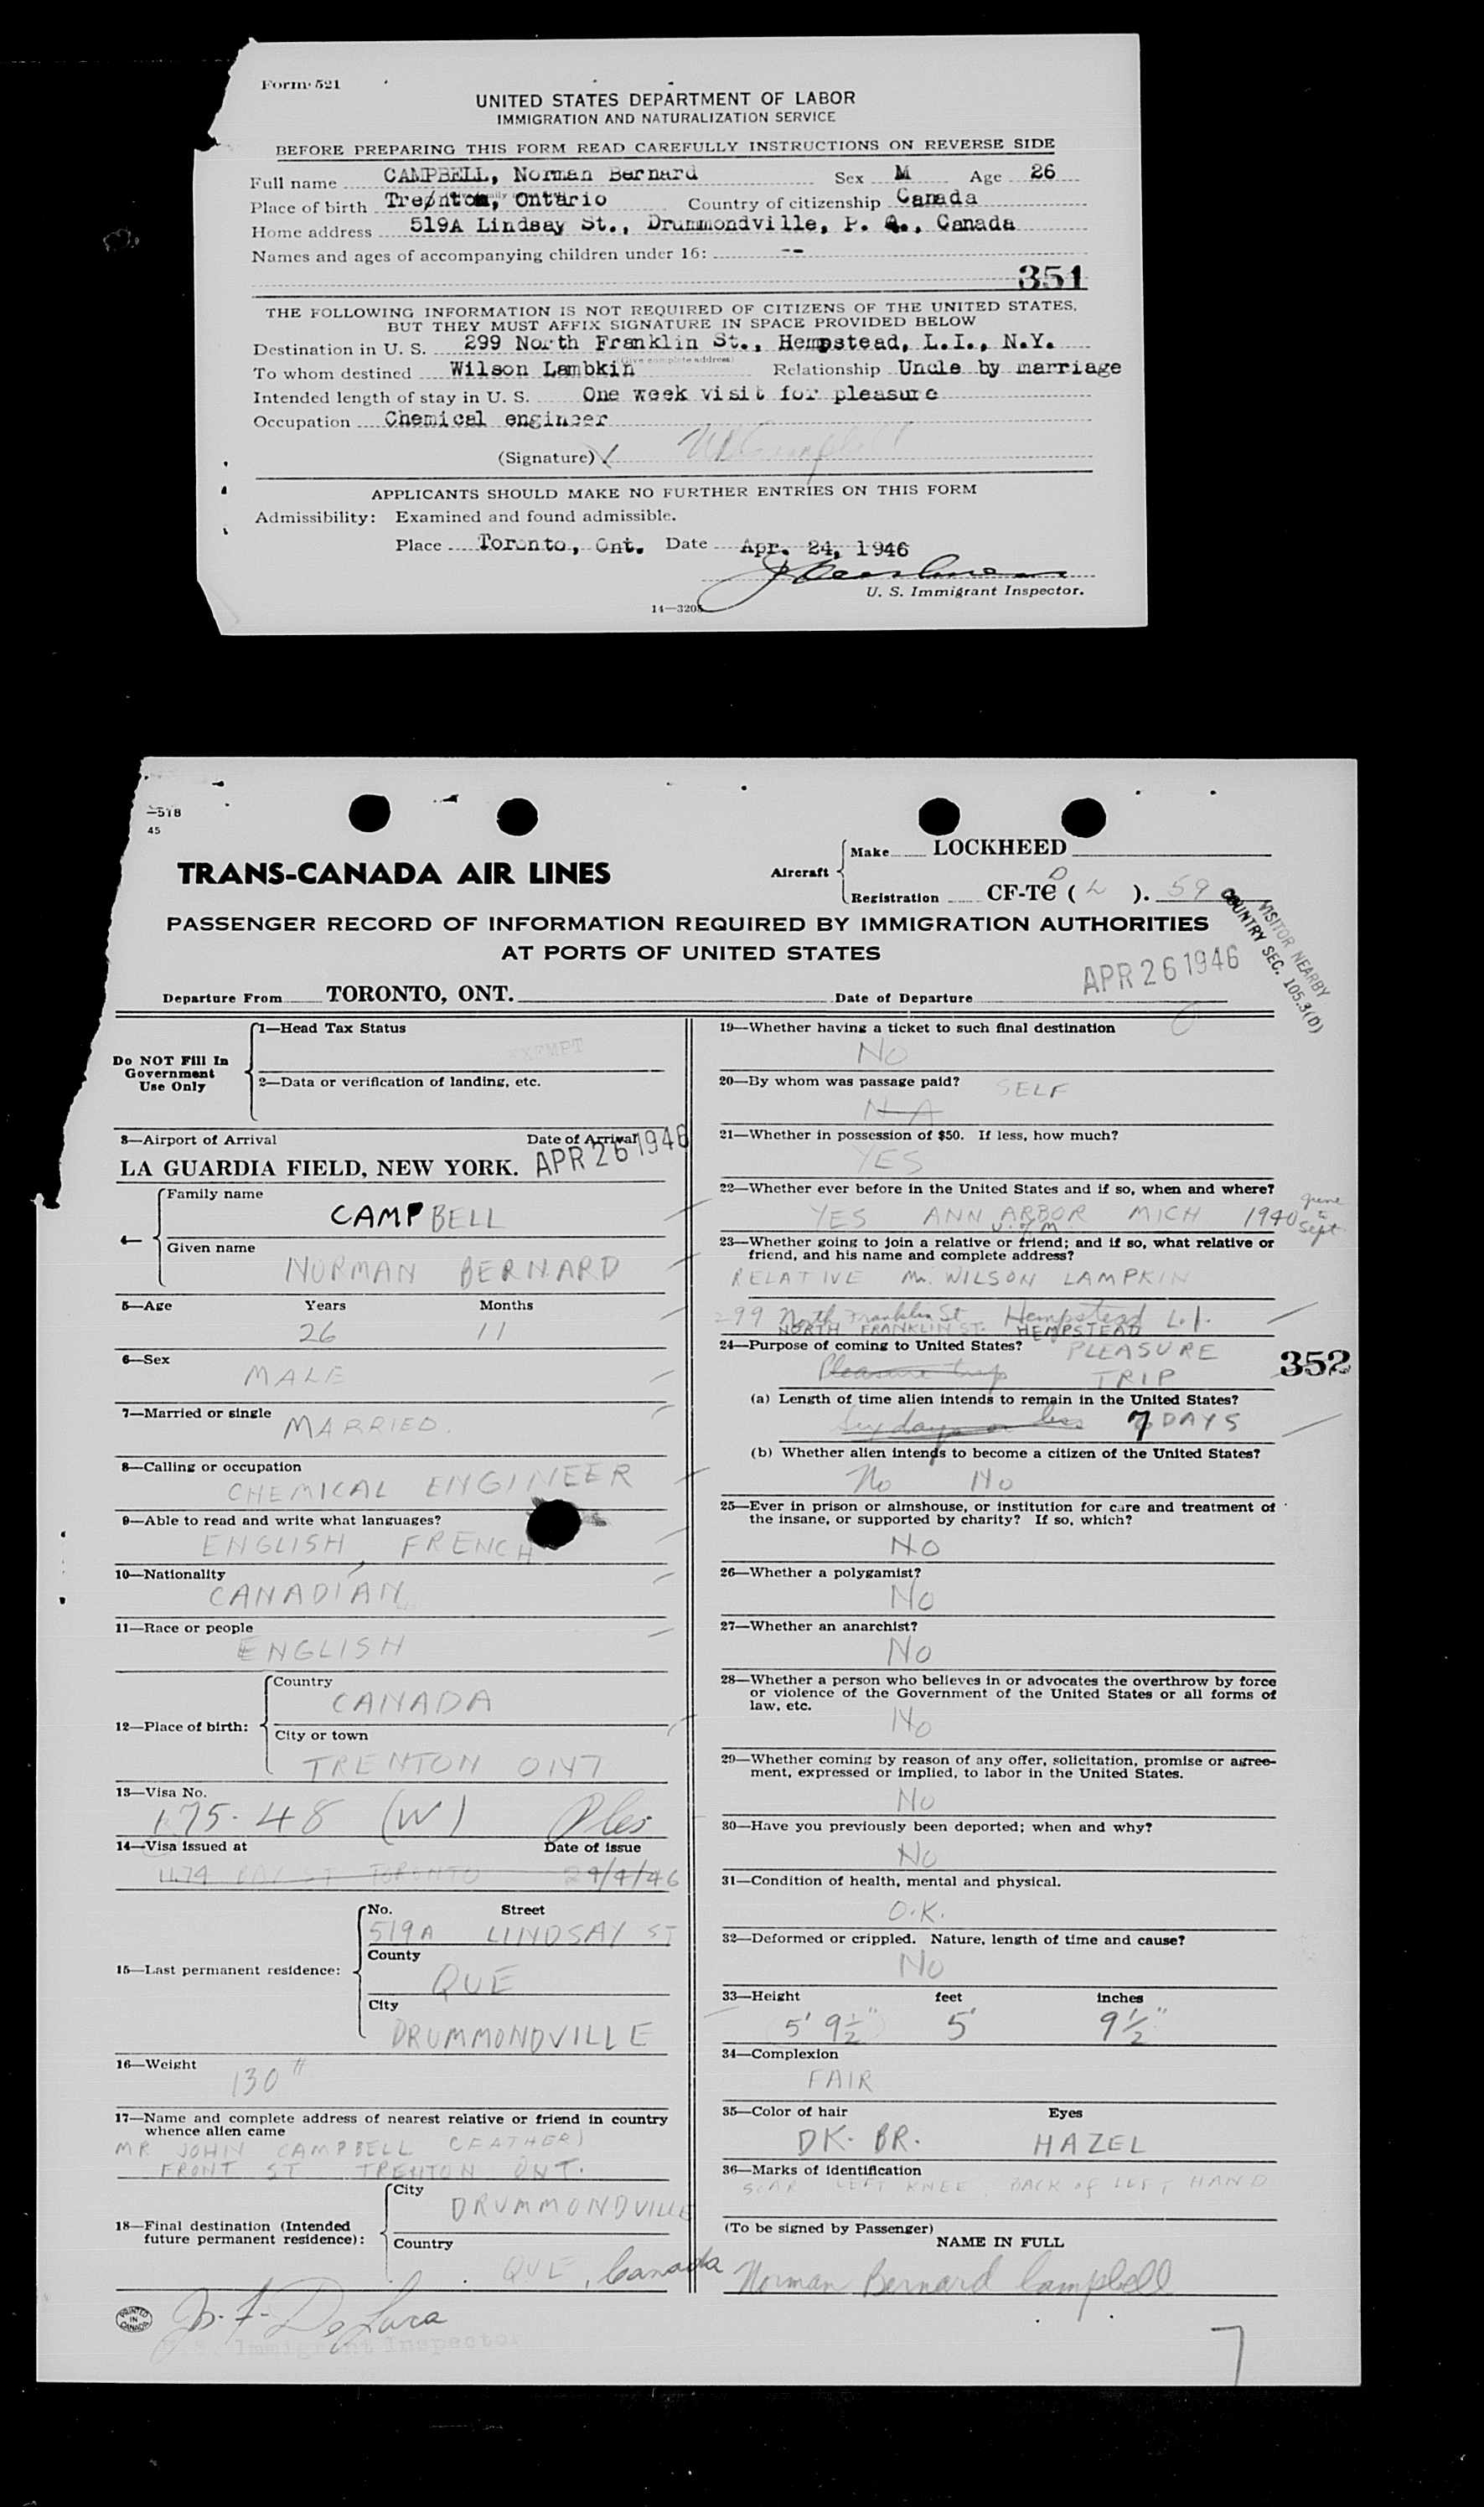 Form 521
UNITED STATES DEPARTMENT OF LABOR
IMMIGRATION AND NATURALIZATION SERVICE
BEFORE PREPARING THIS FORM READ CAREFULLY INSTRUCTIONS ON REVERSE SIDE
Full name CAMPBELL, Norman Bernard Sex M Age 26
Place of birth Trenton, Ontario Country of citizenship Canada
Home address 519A Lindsay St., Drummondville, P. Q., Canada
Names and ages of accompanying children under 16: --
351
THE FOLLOWING INFORMATION IS NOT REQUIRED OF CITIZENS OF THE UNITED STATES,
BUT THEY MUST AFFIX SIGNATURE IN SPACE PROVIDED BELOW
Destination in U. S. 299 North Franklin St., Hempstead, L.I., N.Y.
(Give complete address)
To whom destined Wilson Lambkin Relationship Uncle by marriage
Intended length of stay in U. S. One week visit for pleasure
Occupation Chemical engineer
(Signature) NB Campbell
APPLICANTS SHOULD MAKE NO FURTHER ENTRIES ON THIS FORM
Admissibility: Examined and found admissible.
Place Toronto, Ont. Date Apr. 24, 1946
U. S. Immigrant Inspector.
14—3205
—518
45
TRANS-CANADA AIR LINES
Aircraft Make LOCKHEED
Registration CF-TC ( L ). 59
D
PASSENGER RECORD OF INFORMATION REQUIRED BY IMMIGRATION AUTHORITIES
AT PORTS OF UNITED STATES
VISITOR NEARBY
COUNTRY SEC. 105.3(D)
Departure From TORONTO, ONT. Date of Departure APR 26 1946
Do NOT Fill In
Government
Use Only
1—Head Tax Status
EXEMPT
2—Data or verification of landing, etc.
3—Airport of Arrival Date of Arrival
LA GUARDIA FIELD, NEW YORK. APR 26 1946
4— Family name
CAMPBELL
Given name
NORMAN BERNARD
5—Age Years Months
26 11
6—Sex
MALE
7—Married or single
MARRIED.
8—Calling or occupation
CHEMICAL ENGINEER
9—Able to read and write what languages?
ENGLISH, FRENCH
10—Nationality
CANADIAN
11—Race or people
ENGLISH
12—Place of birth: Country
CANADA
City or town
TRENTON ONT
13—Visa No.
175-48 (W)
14—Visa issued at Date of issue
1174 BAY ST TORONTO 24/4/46
15—Last permanent residence: No. Street
519A LINDSAY ST
County
QUE
City
DRUMMONDVILLE
16—Weight
130 #
17—Name and complete address of nearest relative or friend in country
whence alien came
MR JOHN CAMPBELL (FATHER)
FRONT ST TRENTON ONT.
18—Final destination (Intended
future permanent residence): City
DRUMMONDVILLE
Country
QUE, Canada
PRINTED IN CANADA
U.S. Immigrant Inspector
19—Whether having a ticket to such final destination
NO
20—By whom was passage paid? SELF
N A
21—Whether in possession of $50. If less, how much?
YES
22—Whether ever before in the United States and if so, when and where?
YES ANN ARBOR MICH 1940 June to Sept
U. of M.
23—Whether going to join a relative or friend; and if so, what relative or
friend, and his name and complete address?
RELATIVE Mr. WILSON LAMPKIN
299 North Franklin St Hempstead L.I.
NORTH FRANKLIN ST. HEMPSTEAD
24—Purpose of coming to United States? PLEASURE
Pleasure trip TRIP
352
(a) Length of time alien intends to remain in the United States?
Six days or less 7 DAYS
(b) Whether alien intends to become a citizen of the United States?
No NO
25—Ever in prison or almshouse, or institution for care and treatment of
the insane, or supported by charity? If so, which?
NO
26—Whether a polygamist?
NO
27—Whether an anarchist?
NO
28—Whether a person who believes in or advocates the overthrow by force
or violence of the Government of the United States or all forms of
law, etc.
NO
29—Whether coming by reason of any offer, solicitation, promise or agree-
ment, expressed or implied, to labor in the United States.
NO
30—Have you previously been deported; when and why?
NO
31—Condition of health, mental and physical.
O.K.
32—Deformed or crippled. Nature, length of time and cause?
NO
33—Height feet inches
5' 9½" 5' 9½"
34—Complexion
FAIR
35—Color of hair Eyes
DK. BR. HAZEL
36—Marks of identification
SCAR LEFT KNEE, BACK OF LEFT HAND
(To be signed by Passenger)
NAME IN FULL
Norman Bernard Campbell
7